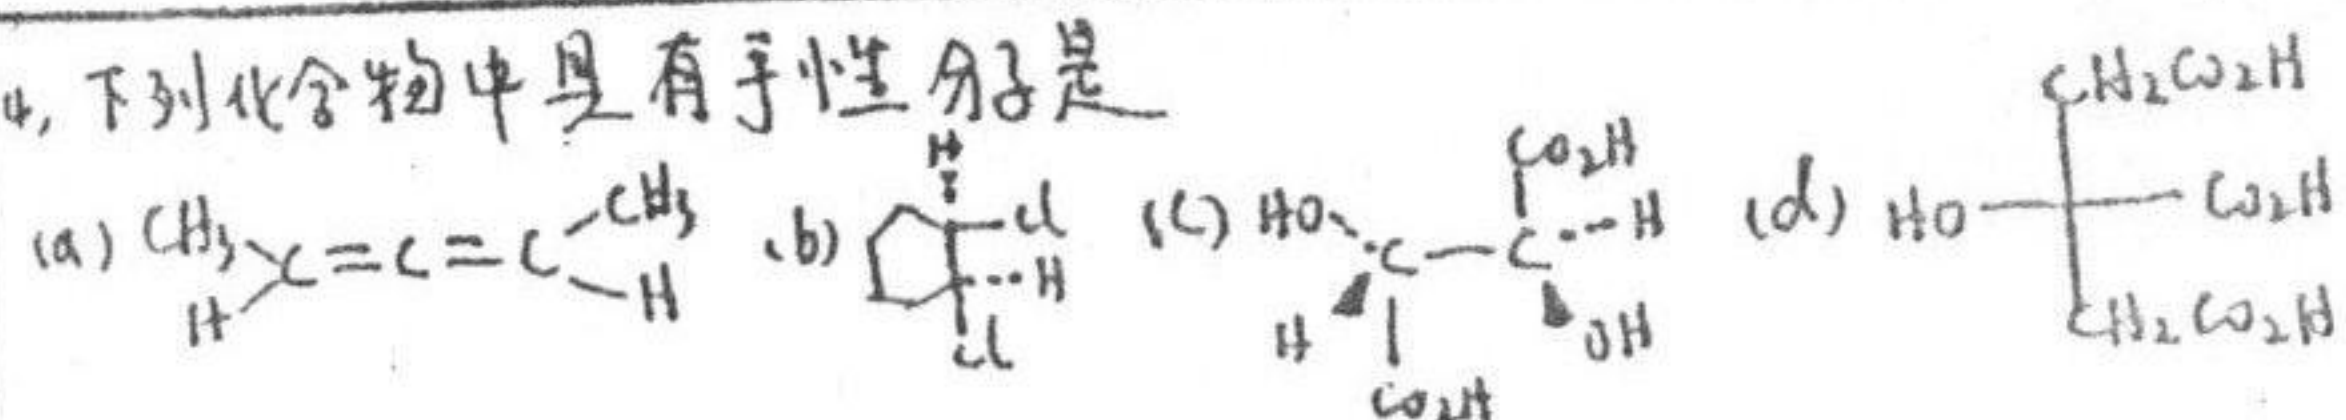 4, 下列化合物中具有手性分子是
(a) CH3 H C=C=C CH3 H (b) H Cl H Cl (c) HO H C CO2H C CO2H H OH (d) HO CH2CO2H CO2H CH2CO2H